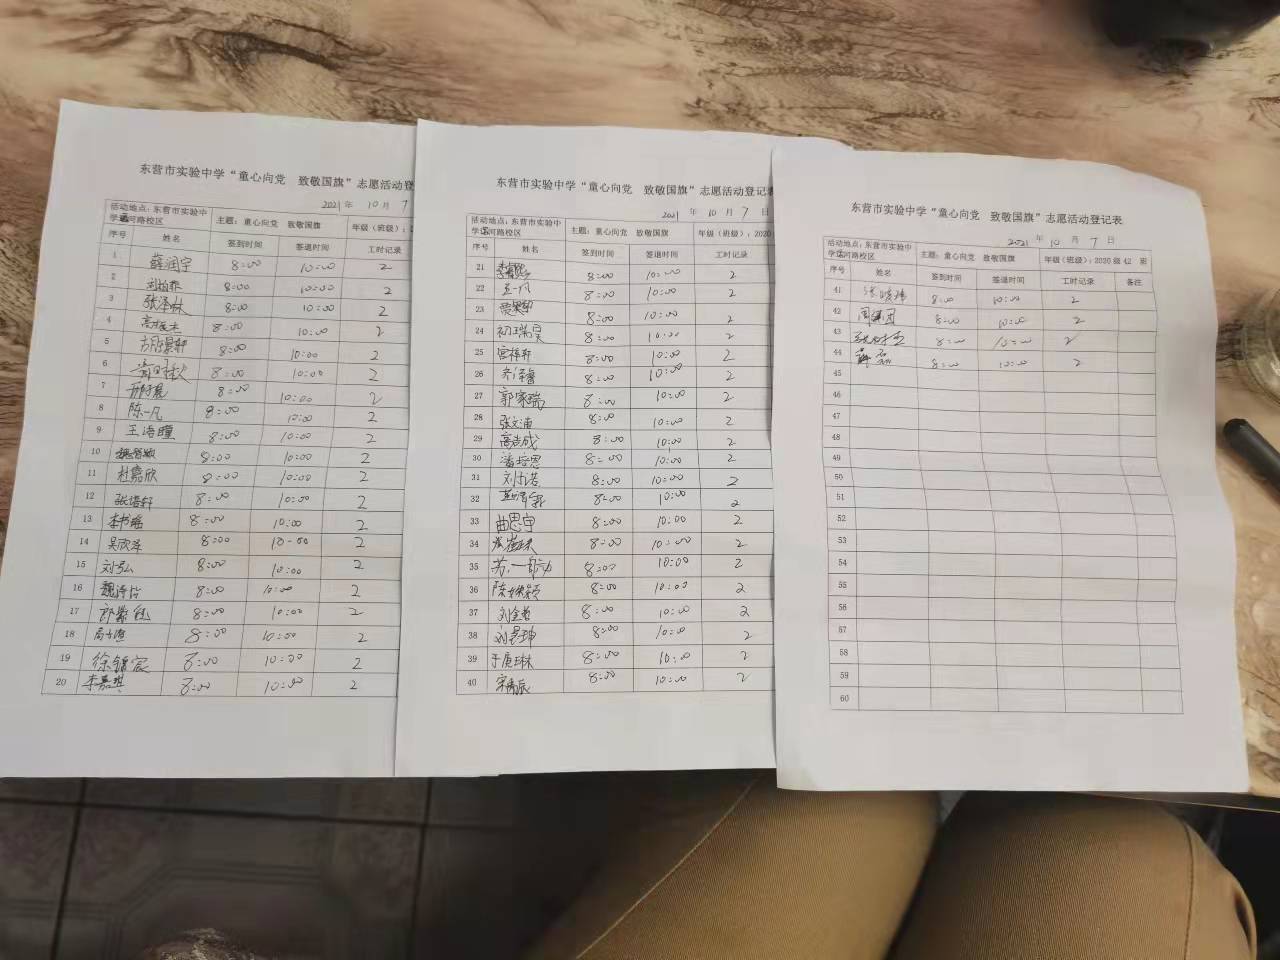 东营市实验中学“童心向党 致敬国旗”志愿活动登
2021年 10月 7
活动地点：东营市实验中 主题：童心向党 致敬国旗 年级（班级）：
河路校区
序号 姓名 签到时间 签退时间 工时记录
1 薛润宇 8:00 10:00 2
2 8:00 10:00 2
3 张泽林 8:00 10:00 2
4 8:00 10:00 2
5 8:00 10:00 2
6 8:00 10:00 2
7 8:00 10:00 2
8 陈一凡 8:00 10:00 2
9 王浩瞳 8:00 10:00 2
10 8:00 10:00 2
11 杜嘉欣 8:00 10:00 2
12 8:00 10:00 2
13 李书瑶 8:00 10:00 2
14 吴欣泽 8:00 10-00 2
15 刘弘 8:00 10:00 2
16 8:00 10:00 2
17 8:00 10:00 2
18 8:00 10:00 2
19 徐镇宸 8:00 10:00 2
20 李嘉琪 8:00 10:00 2
东营市实验中学“童心向党 致敬国旗”志愿活动登记表
2021年 10月 7日
活动地点：东营市实验中 主题：童心向党 致敬国旗 年级（班级）：2020
河路校区
序号 姓名 签到时间 签退时间 工时记录
21 8:00 10:00 2
22 8:00 10:00 2
23 8:00 10:00 2
24 初瑞昊 8:00 10:00 2
25 8:00 10:00 2
26 8:00 10:00 2
27 郭家瑞 8:00 10:00 2
28 张文涌 8:00 10:00 2
29 高志成 8:00 10:00 2
30 潘培恩 8:00 10:00 2
31 刘子诺 8:00 10:00 2
32 8:00 10:00 2
33 曲思宇 8:00 10:00 2
34 8:00 10:00 2
35 8:00 10:00 2
36 8:00 10:00 2
37 8:00 10:00 2
38 刘昊坤 8:00 10:00 2
39 于庚琳 8:00 10:00 2
40 8:00 10:00 2
东营市实验中学“童心向党 致敬国旗”志愿活动登记表
2021年 10月 7日
活动地点：东营市实验中 主题：童心向党 致敬国旗 年级（班级）：2020级42 班
河路校区
序号 姓名 签到时间 签退时间 工时记录 备注
41 8:00 10:00 2
42 8:00 10:00 2
43 8:00 10:00 2
44 薛磊 8:00 10:00 2
45
46
47
48
49
50
51
52
53
54
55
56
57
58
59
60